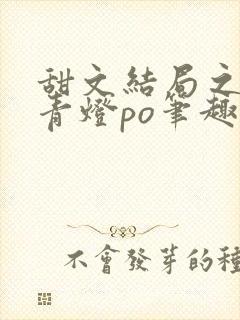 甜文結局之
青燈po筆趣
不會發芽的種